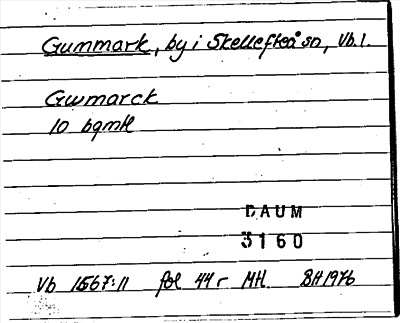 Gummark, by i Skellefteå sn, Vb. l.
Gwmarck
10 bgmHl
DAUM
3160
Vb 1567:11 fol 44 r MH. BH 1976